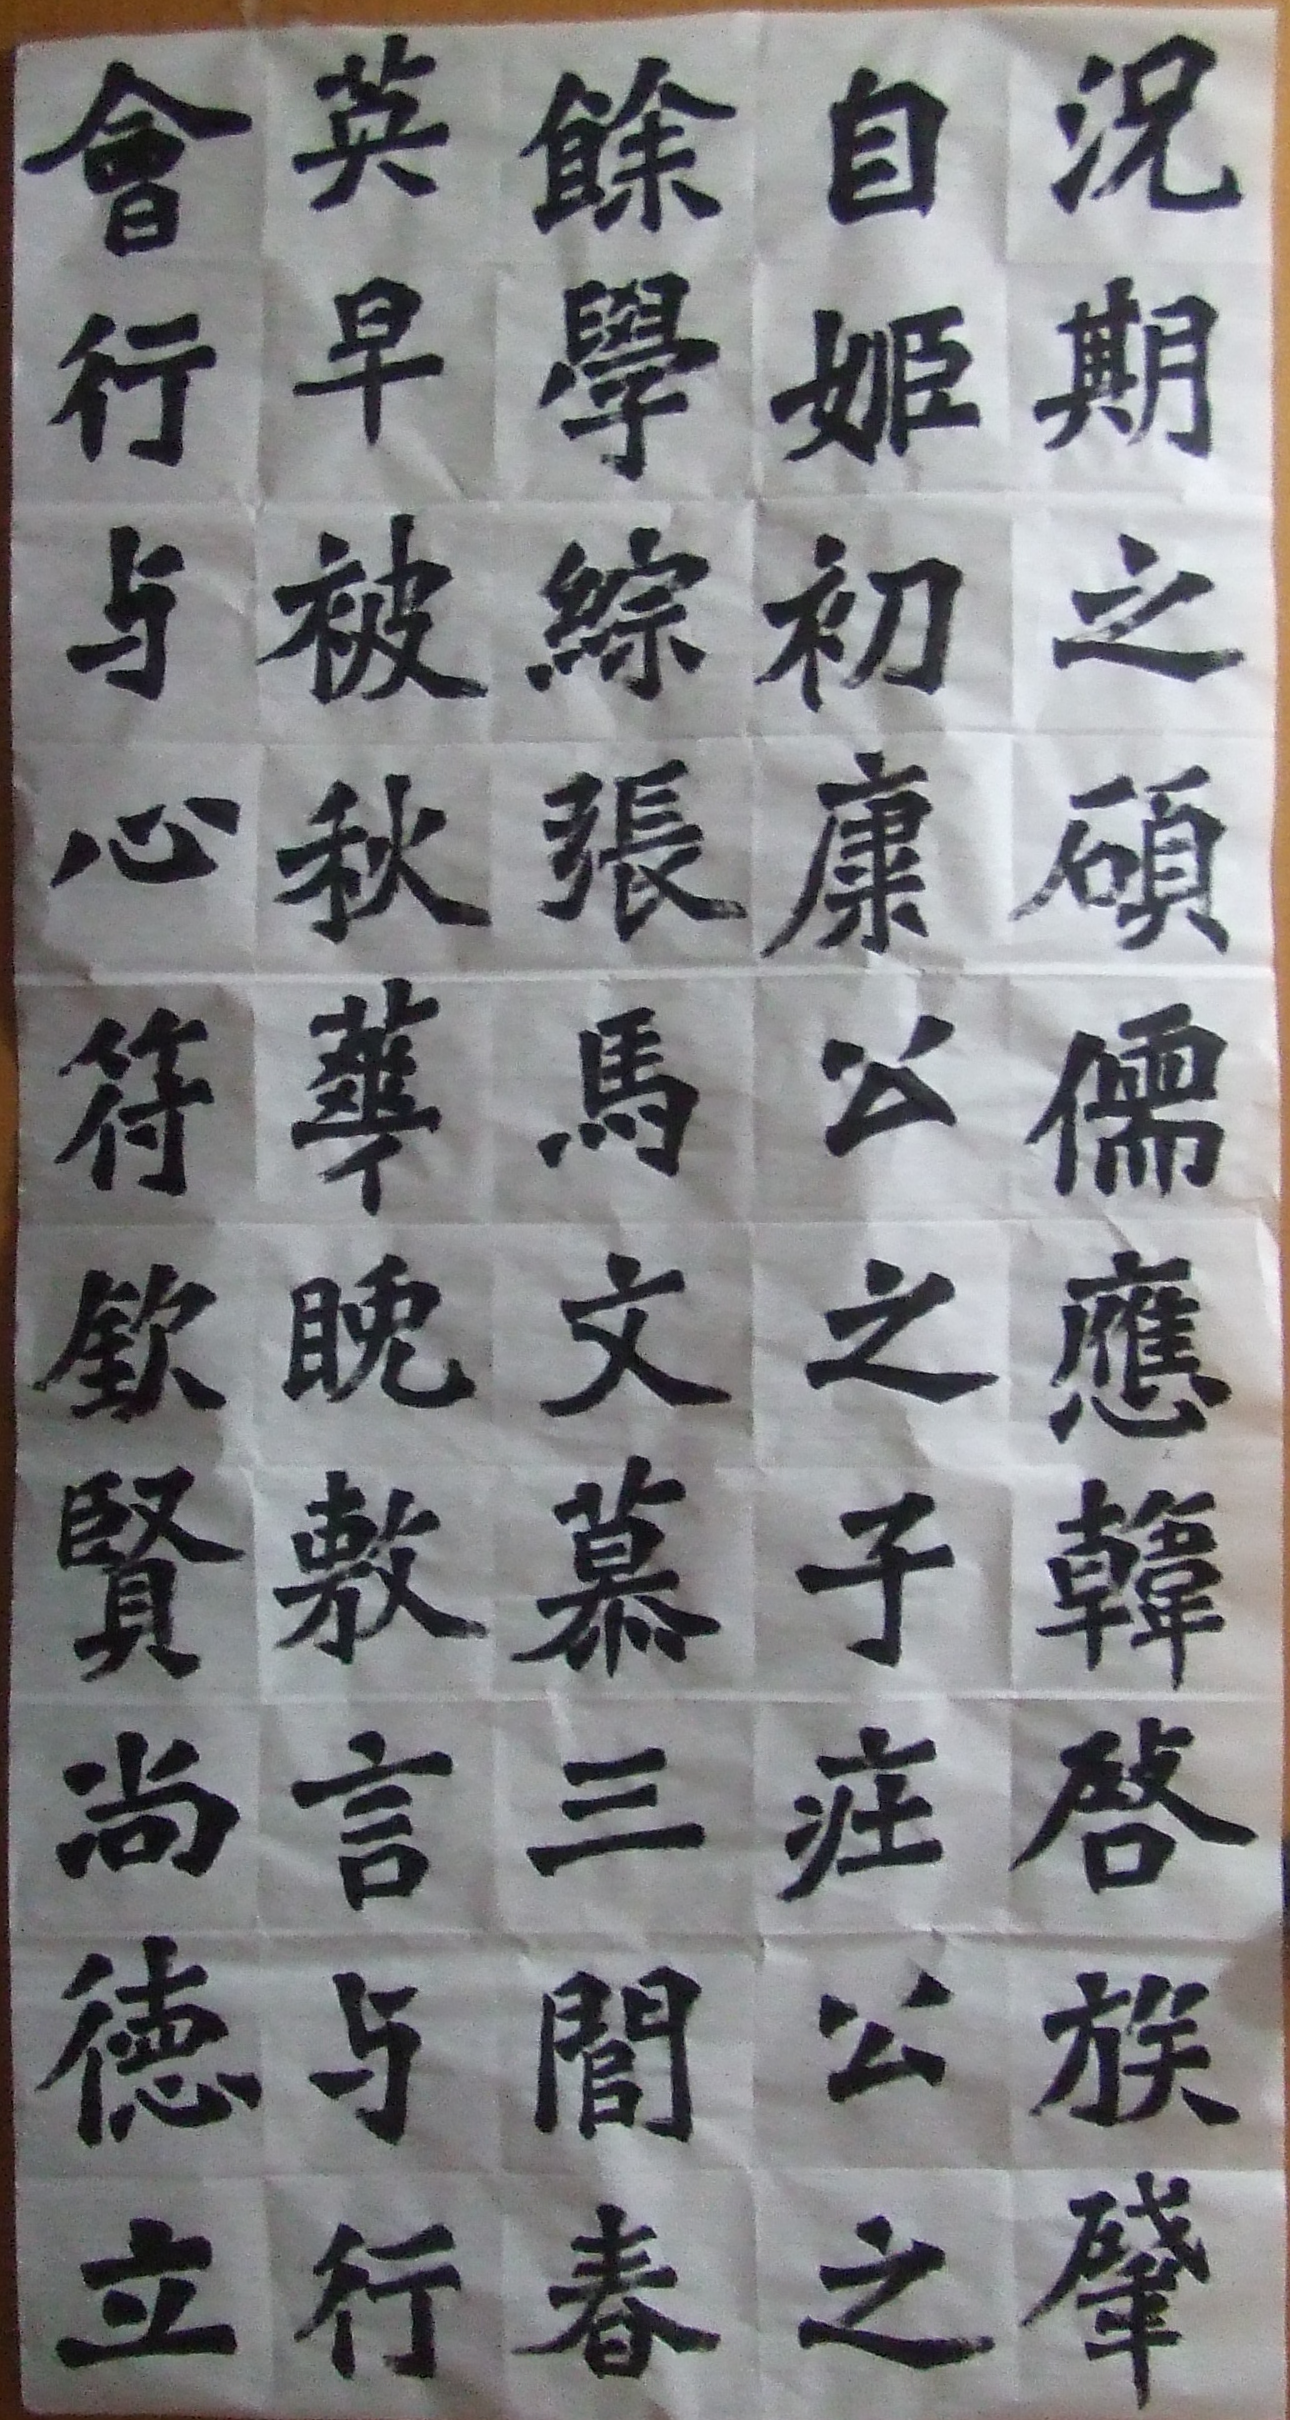 況期之碩儒應韓啓族肈
自姬初康公之子莊公之
餘學綜張馬文慕三閭春
英早被秋華晚敷言与行
會行与心符欽賢尚德立